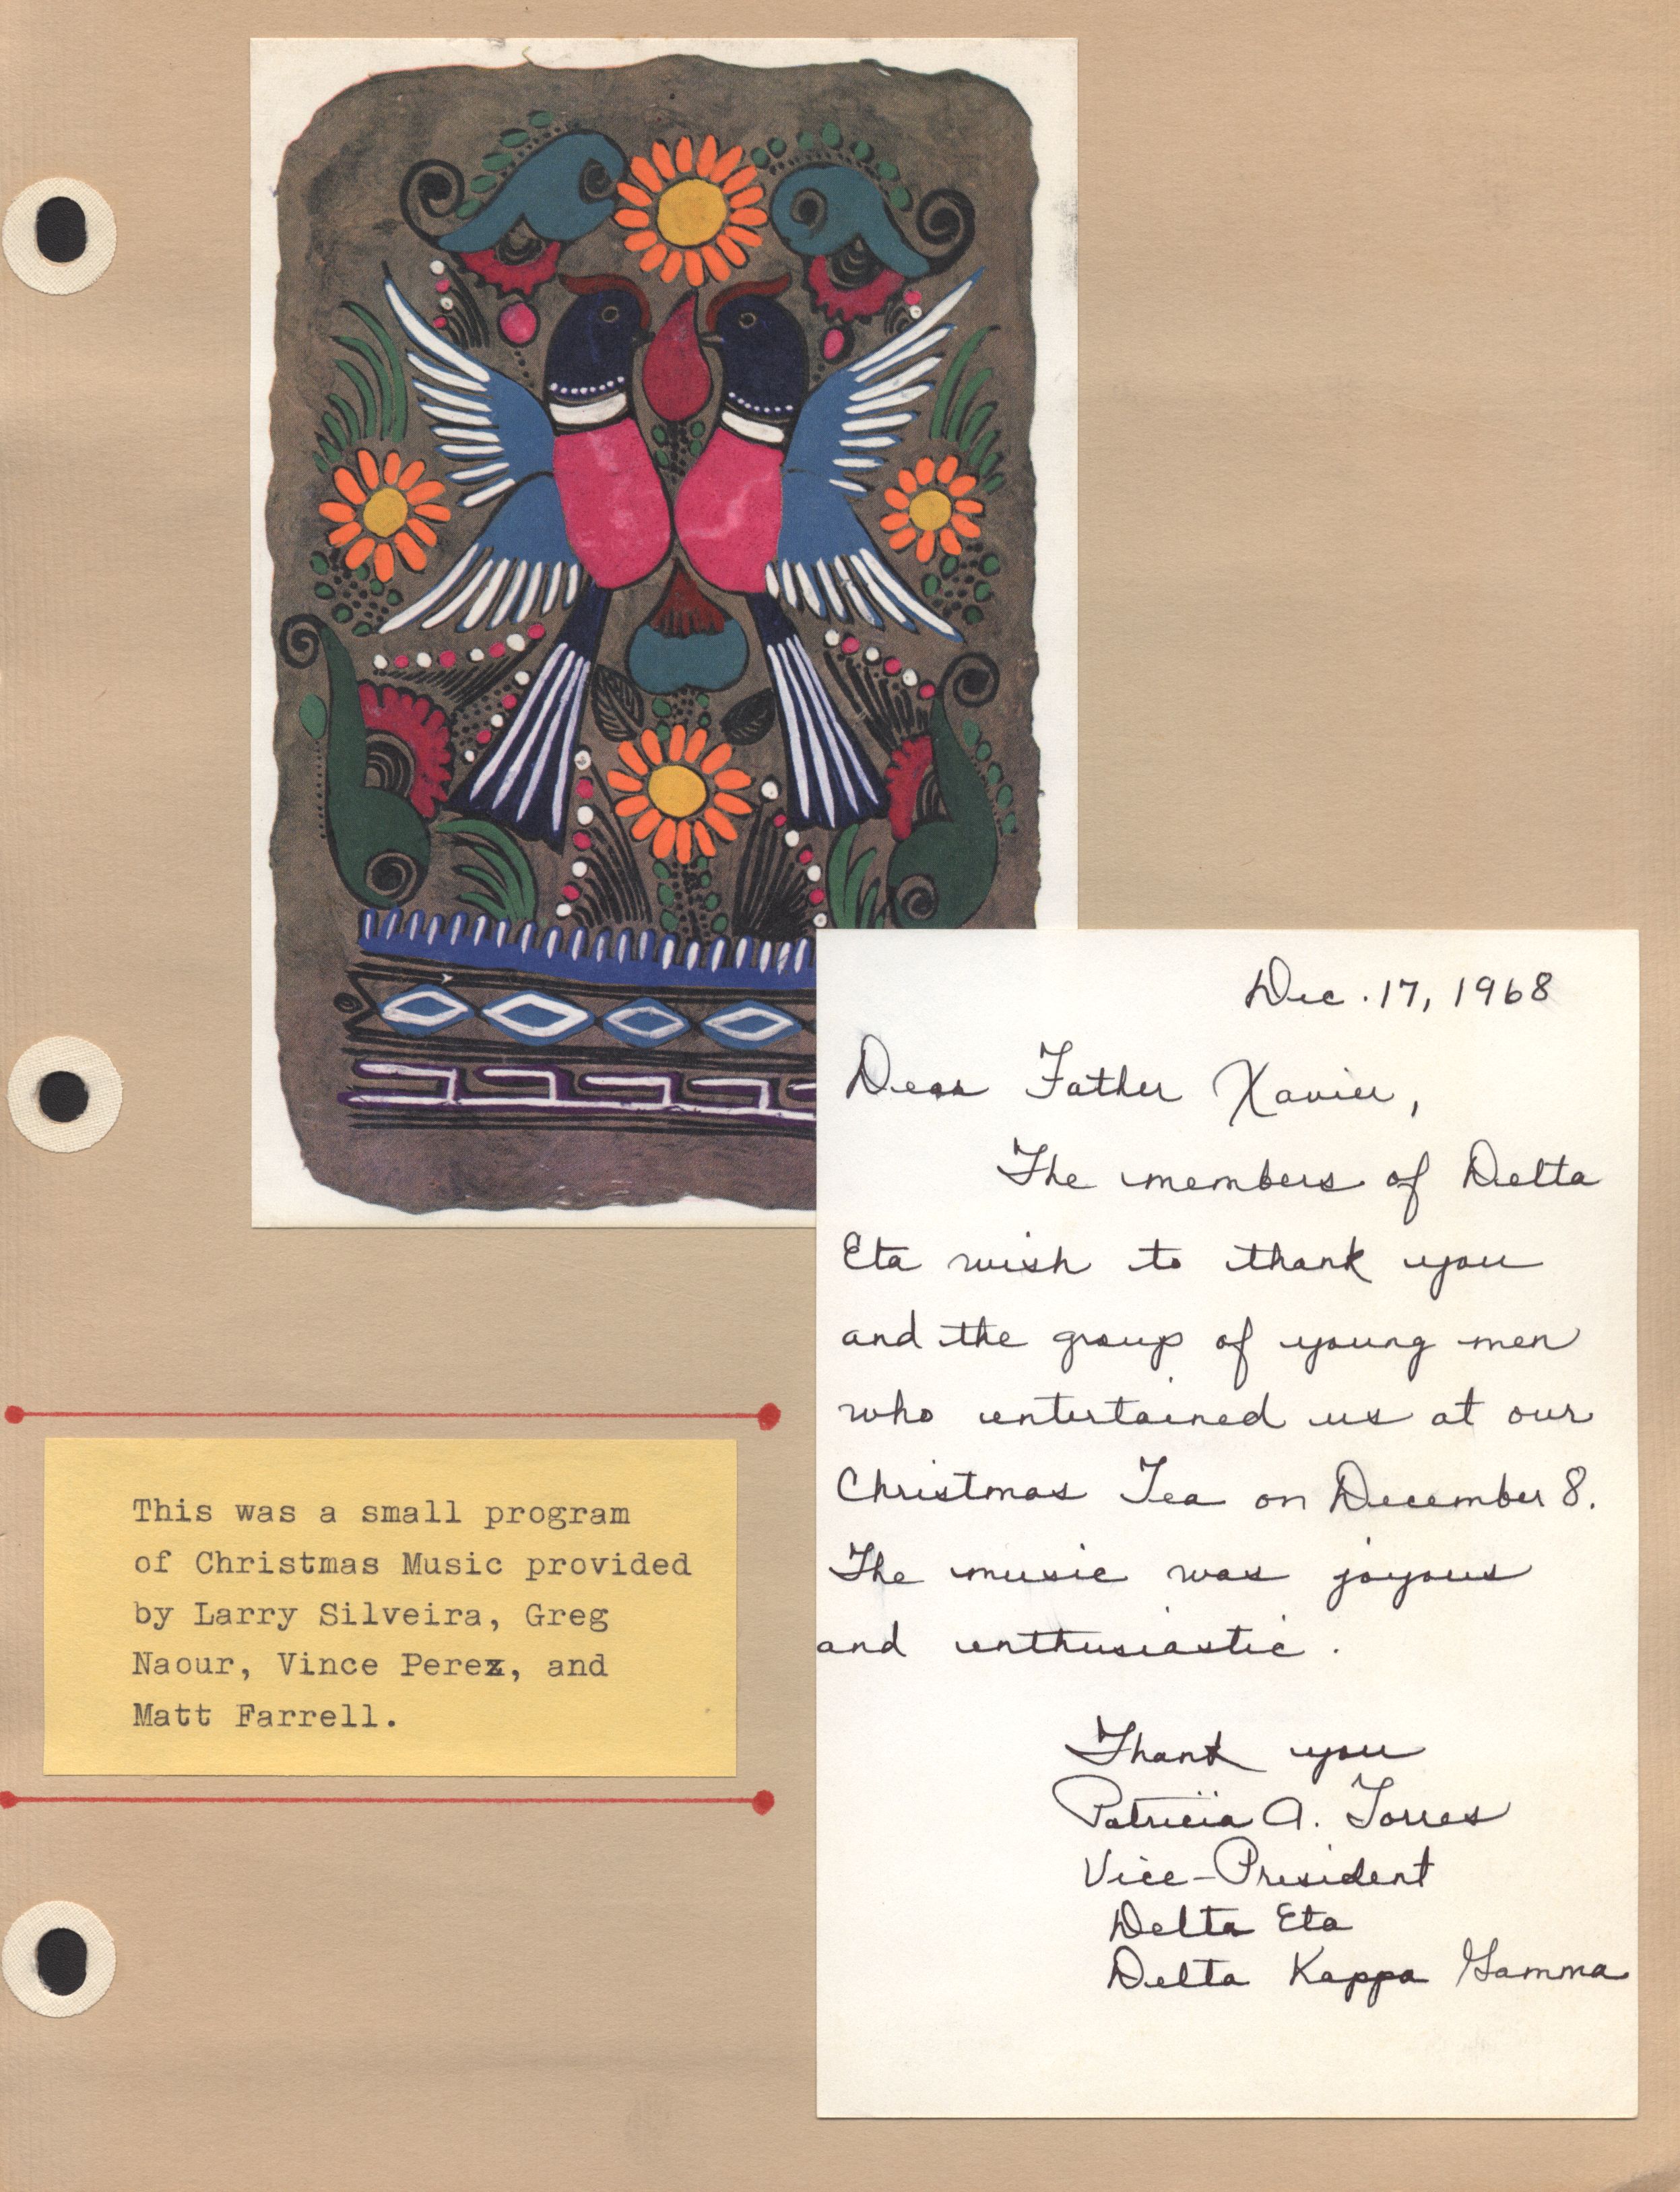 Dec. 17, 1968
Dear Father Xavier,
The members of Delta
Eta wish to thank you
and the group of young men
who entertained us at our
Christmas Tea on December 8.
The music was joyous
and enthusiastic.
Thank you
Patricia A. Torres
Vice-President
Delta Eta
Delta Kappa Gamma
This was a small program
of Christmas Music provided
by Larry Silveira, Greg
Naour, Vince Perez, and
Matt Farrell.